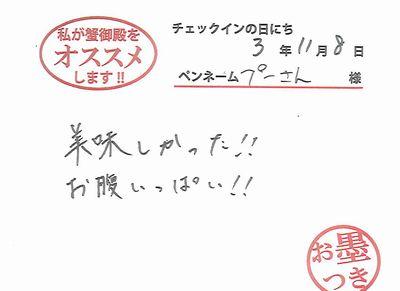 私が蟹御殿を
オススメ
します!!
チェックインの日にち
3年11月8日
ペンネーム プーさん 様
美味しかった!!
お腹いっぱい!!
お墨
つき